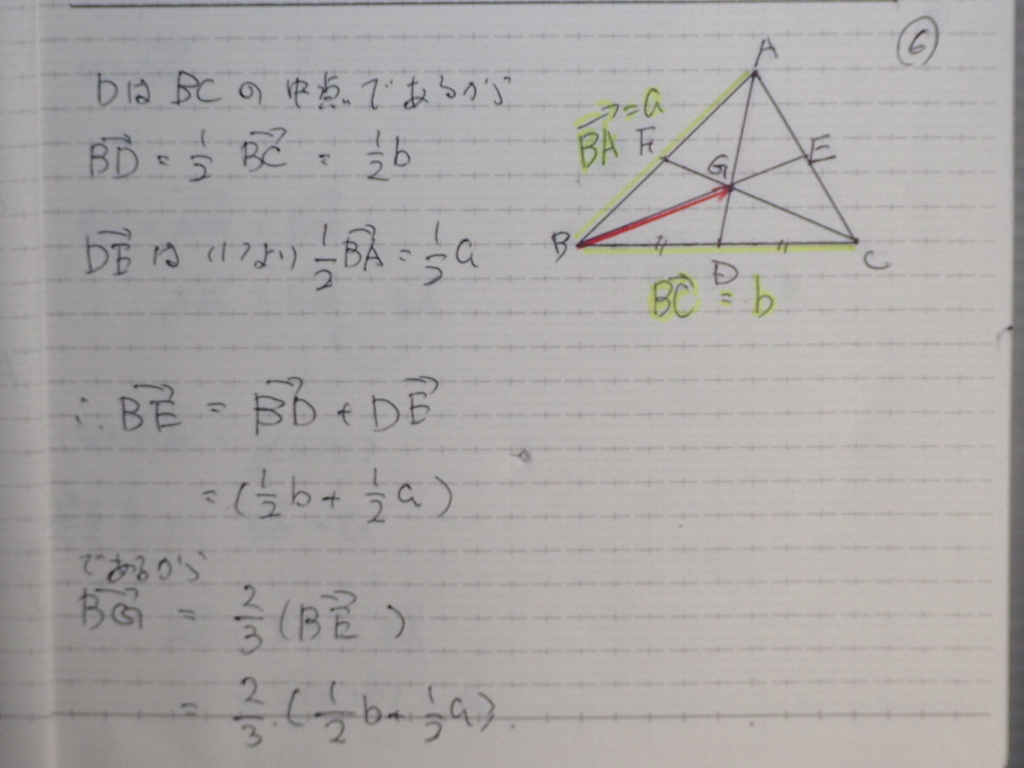 ⑥
DはBCの中点であるから
BD = 1/2 BC = 1/2 b
DEは(1)より 1/2 BA = 1/2 a
A
BA = a
F
E
G
B
D
C
BC = b
∴ BE = BD + DE
= (1/2 b + 1/2 a)
であるから
BG = 2/3 (BE)
= 2/3 (1/2 b + 1/2 a)